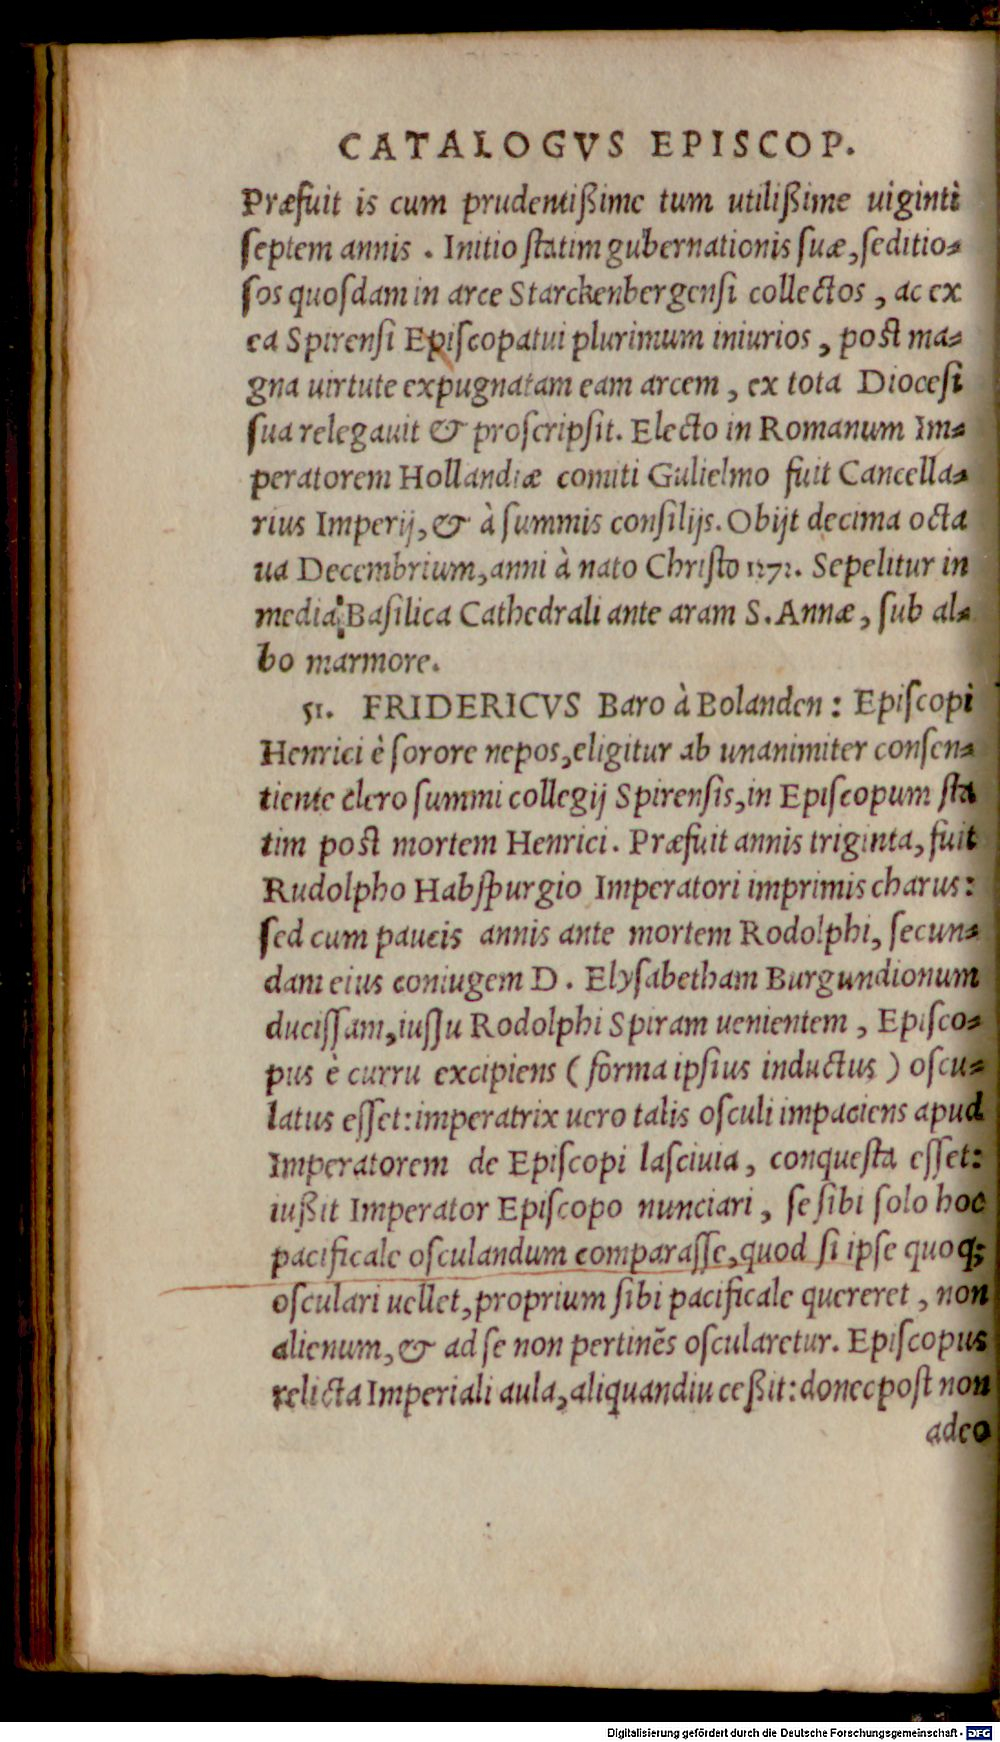 CATALOGVS EPISCOP.
Præfuit is cum prudentißime tum utilißime uigintì
septem annis . Initio statim gubernationis suæ, seditio-
sos quosdam in arce Starckenbergensi collectos , ac ex
ea Spirensi Episcopatui plurimum iniurios , post ma-
gna uirtute expugnatam eam arcem , ex tota Diocesi
sua relegauit & proscripsit. Electo in Romanum Im-
peratorem Hollandiæ comiti Gulielmo fuit Cancella-
rius Imperij, & à summis consilijs. Obijt decima octa
ua Decembrium, anni à nato Christo 1272. Sepelitur in
media Basilica Cathedrali ante aram S. Annæ, sub al-
bo marmore.
51. FRIDERICVS Baro à Bolanden : Episcopi
Henrici è sorore nepos, eligitur ab unanimiter consen-
tiente clero summi collegij Spirensis, in Episcopum sta
tim post mortem Henrici. Præfuit annis triginta, fuit
Rudolpho Habspurgio Imperatori imprimis charus:
sed cum paucis annis ante mortem Rodolphi, secun-
dam eius coniugem D. Elysabetham Burgundionum
ducissam, iussu Rodolphi Spiram uenientem , Episco-
pus è curru excipiens ( forma ipsius inductus ) oscu-
latus esset: imperatrix uero talis osculi impaciens apud
Imperatorem de Episcopi lasciuia, conquesta esset:
iußit Imperator Episcopo nunciari , se sibi solo hoc
pacificale osculandum comparasse, quod si ipse quoq;
osculari uellet, proprium sibi pacificale quereret , non
alienum, & ad se non pertinẽs oscularetur. Episcopus
relicta Imperiali aula, aliquandiu ceßit: donec post non
adeo
Digitalisierung gefördert durch die Deutsche Forschungsgemeinschaft - DFG